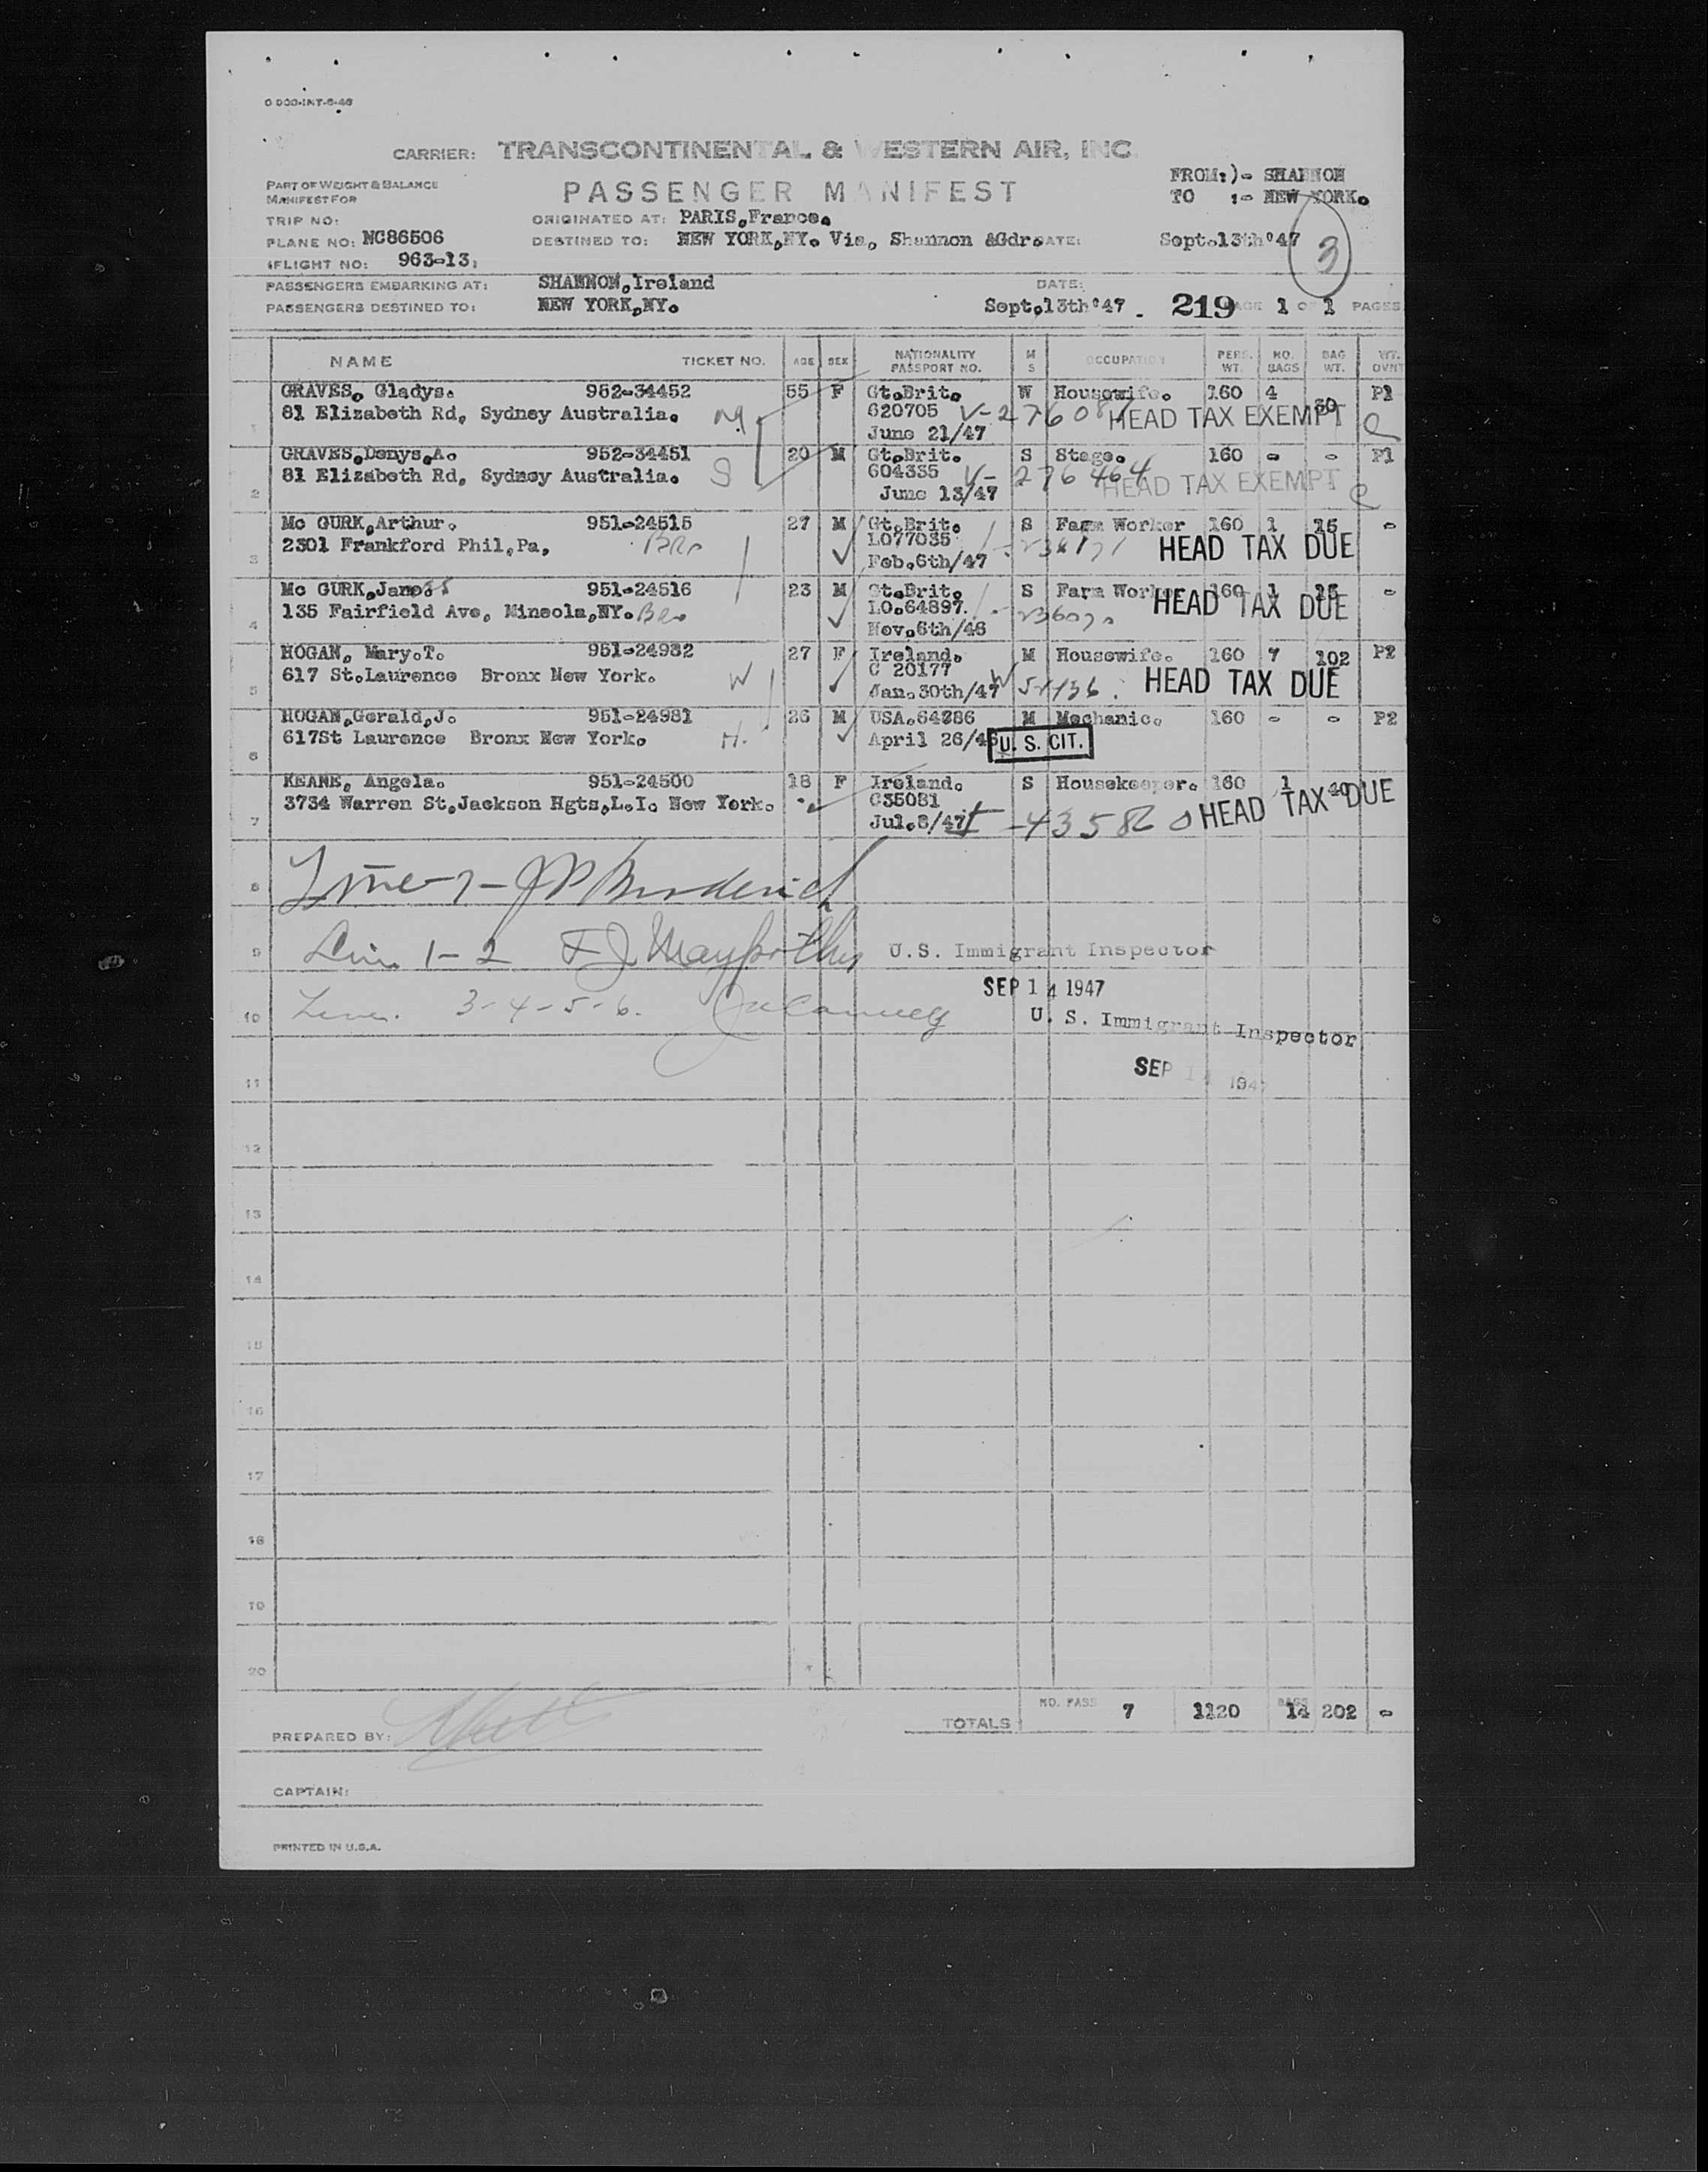 O 900-INT-6-46
CARRIER: TRANSCONTINENTAL & WESTERN AIR, INC.
PART OF WEIGHT & BALANCE
MANIFEST FOR
PASSENGER MANIFEST
FROM:)- SHANNON
TO :- NEW YORK.
TRIP NO:
ORIGINATED AT: PARIS,France.
PLANE NO: NC86506
DESTINED TO: NEW YORK,NY. Via, Shannon &Gdr. DATE: Sept.13th'47
3
FLIGHT NO: 963-13
PASSENGERS EMBARKING AT: SHANNON,Ireland
DATE:
PASSENGERS DESTINED TO: NEW YORK,NY.
Sept,13th'47 . 219 PAGE 1 OF 1 PAGES
NAME TICKET NO. AGE SEX NATIONALITY PASSPORT NO. M S OCCUPATION PERS. WT. NO. BAGS BAG WT. WT. OVNT
GRAVES, Gladys. 952-34452 55 F Gt.Brit. W Housewife. 160 4 30 P1
81 Elizabeth Rd, Sydney Australia. M 620705 V-276087 HEAD TAX EXEMPT
1 June 21/47
GRAVES,Denys,A. 952-34451 20 M Gt.Brit. S Stage. 160 - - P1
81 Elizabeth Rd, Sydney Australia. S 604335 V-276464 HEAD TAX EXEMPT
2 June 13/47
Mc GURK,Arthur. 951-24515 27 M Gt.Brit. S Farm Worker 160 1 15 -
2301 Frankford Phil,Pa, Bro LO77035 HEAD TAX DUE
3 Feb,6th/47
Mc GURK,James 951-24516 23 M Gt.Brit. S Farm Worker 160 1 15 -
135 Fairfield Ave, Mineola,NY. Bro LO.64897. HEAD TAX DUE
4 Nov,6th/46
HOGAN, Mary.T. 951-24982 27 F Ireland. M Housewife. 160 7 102 P2
617 St.Laurence Bronx New York. W C 20177 HEAD TAX DUE
5 Jan,30th/47
HOGAN,Gerald,J. 951-24981 26 M USA.64286 M Mechanic. 160 - - P2
617St Laurence Bronx New York. H. April 26/46 U. S. CIT.
6
KEANE, Angela. 951-24500 18 F Ireland. S Housekeeper. 160 1 40
3734 Warren St,Jackson Hgts,L.I. New York. C35081 HEAD TAX DUE
7 Jul.8/47
8 Line 7- JP Broderick
9 Line 1-2 U.S. Immigrant Inspector
SEP 14 1947
10 Line. 3-4-5-6. U. S. Immigrant Inspector
SEP 14 1947
11
12
13
14
15
16
17
18
19
20
TOTALS NO. PASS 7 1120 BAGS 14 202 -
PREPARED BY:
CAPTAIN:
PRINTED IN U.S.A.